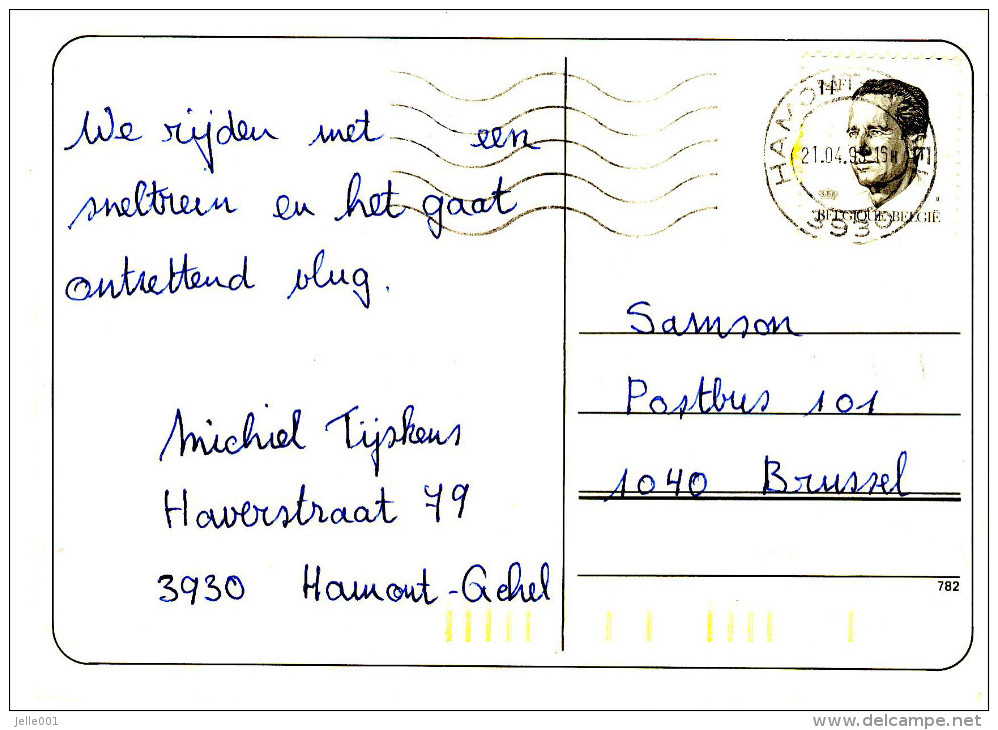 We rijden met een
sneltrein en het gaat
ontzettend vlug.
Michiel Tijskens
Haverstraat 79
3930 Hamont-Achel
14F
HAMONT
21.04.93-16H
3930
BELGIQUE-BELGIË
Samson
Postbus 101
1040 Brussel
782
jelle001
www.delcampe.net